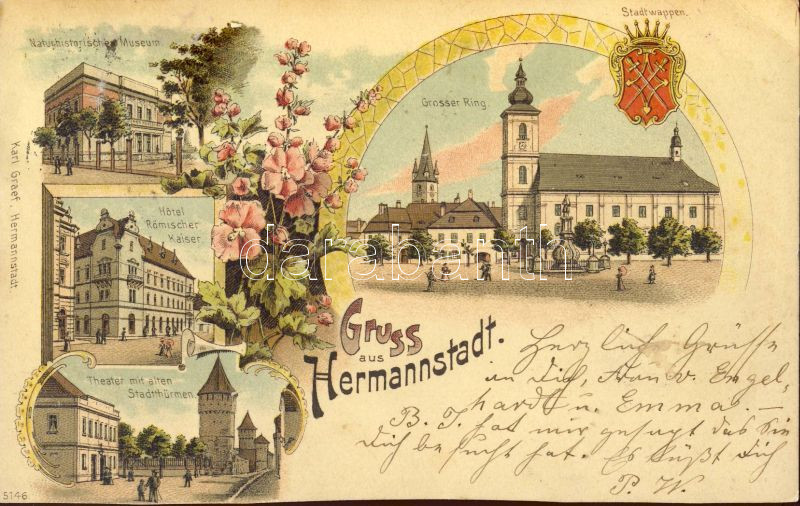 Naturhistorisches Museum.
Stadtwappen.
Grosser Ring.
Hôtel
Römischer
Kaiser.
Karl Graef, Hermannstadt.
darabanth
Gruss
aus
Hermannstadt.
Theater mit alten
Stadtthürmen.
Herzliche Grüsse
an Dich, Frau v. Engel-
hardt u. Emma. –
B. J. hat mir gesagt das Sie
Dich besucht hat. Es küßt Dich
P. W.
5146